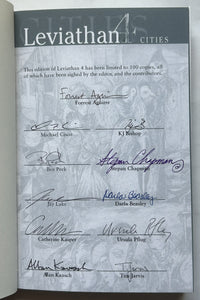 CITIES
Leviathan 4
CITIES
This edition of Leviathan 4 has been limited to 100 copies, all
of which have been signed by the editor, and the contributors.
Forrest Aguirre
Forrest Aguirre
Michael Cisco KJ Bishop
Ben Peek Stepan Chapman
Stepan Chapman
Jay Lake Darla Beasley
Darla Beasley
Catherine Kasper Ursula Pflug
Ursula Pflug
Allan Kausch
Allan Kausch Tim Jarvis